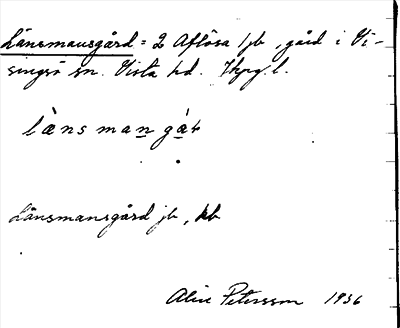 Länsmansgård = 2 Aflösa 1 jb, gård i Vi-
singsö sn. Vista hd. Jkpg. l.
länsmangår
Länsmansgård jb, kb
Alice Petersson 1936